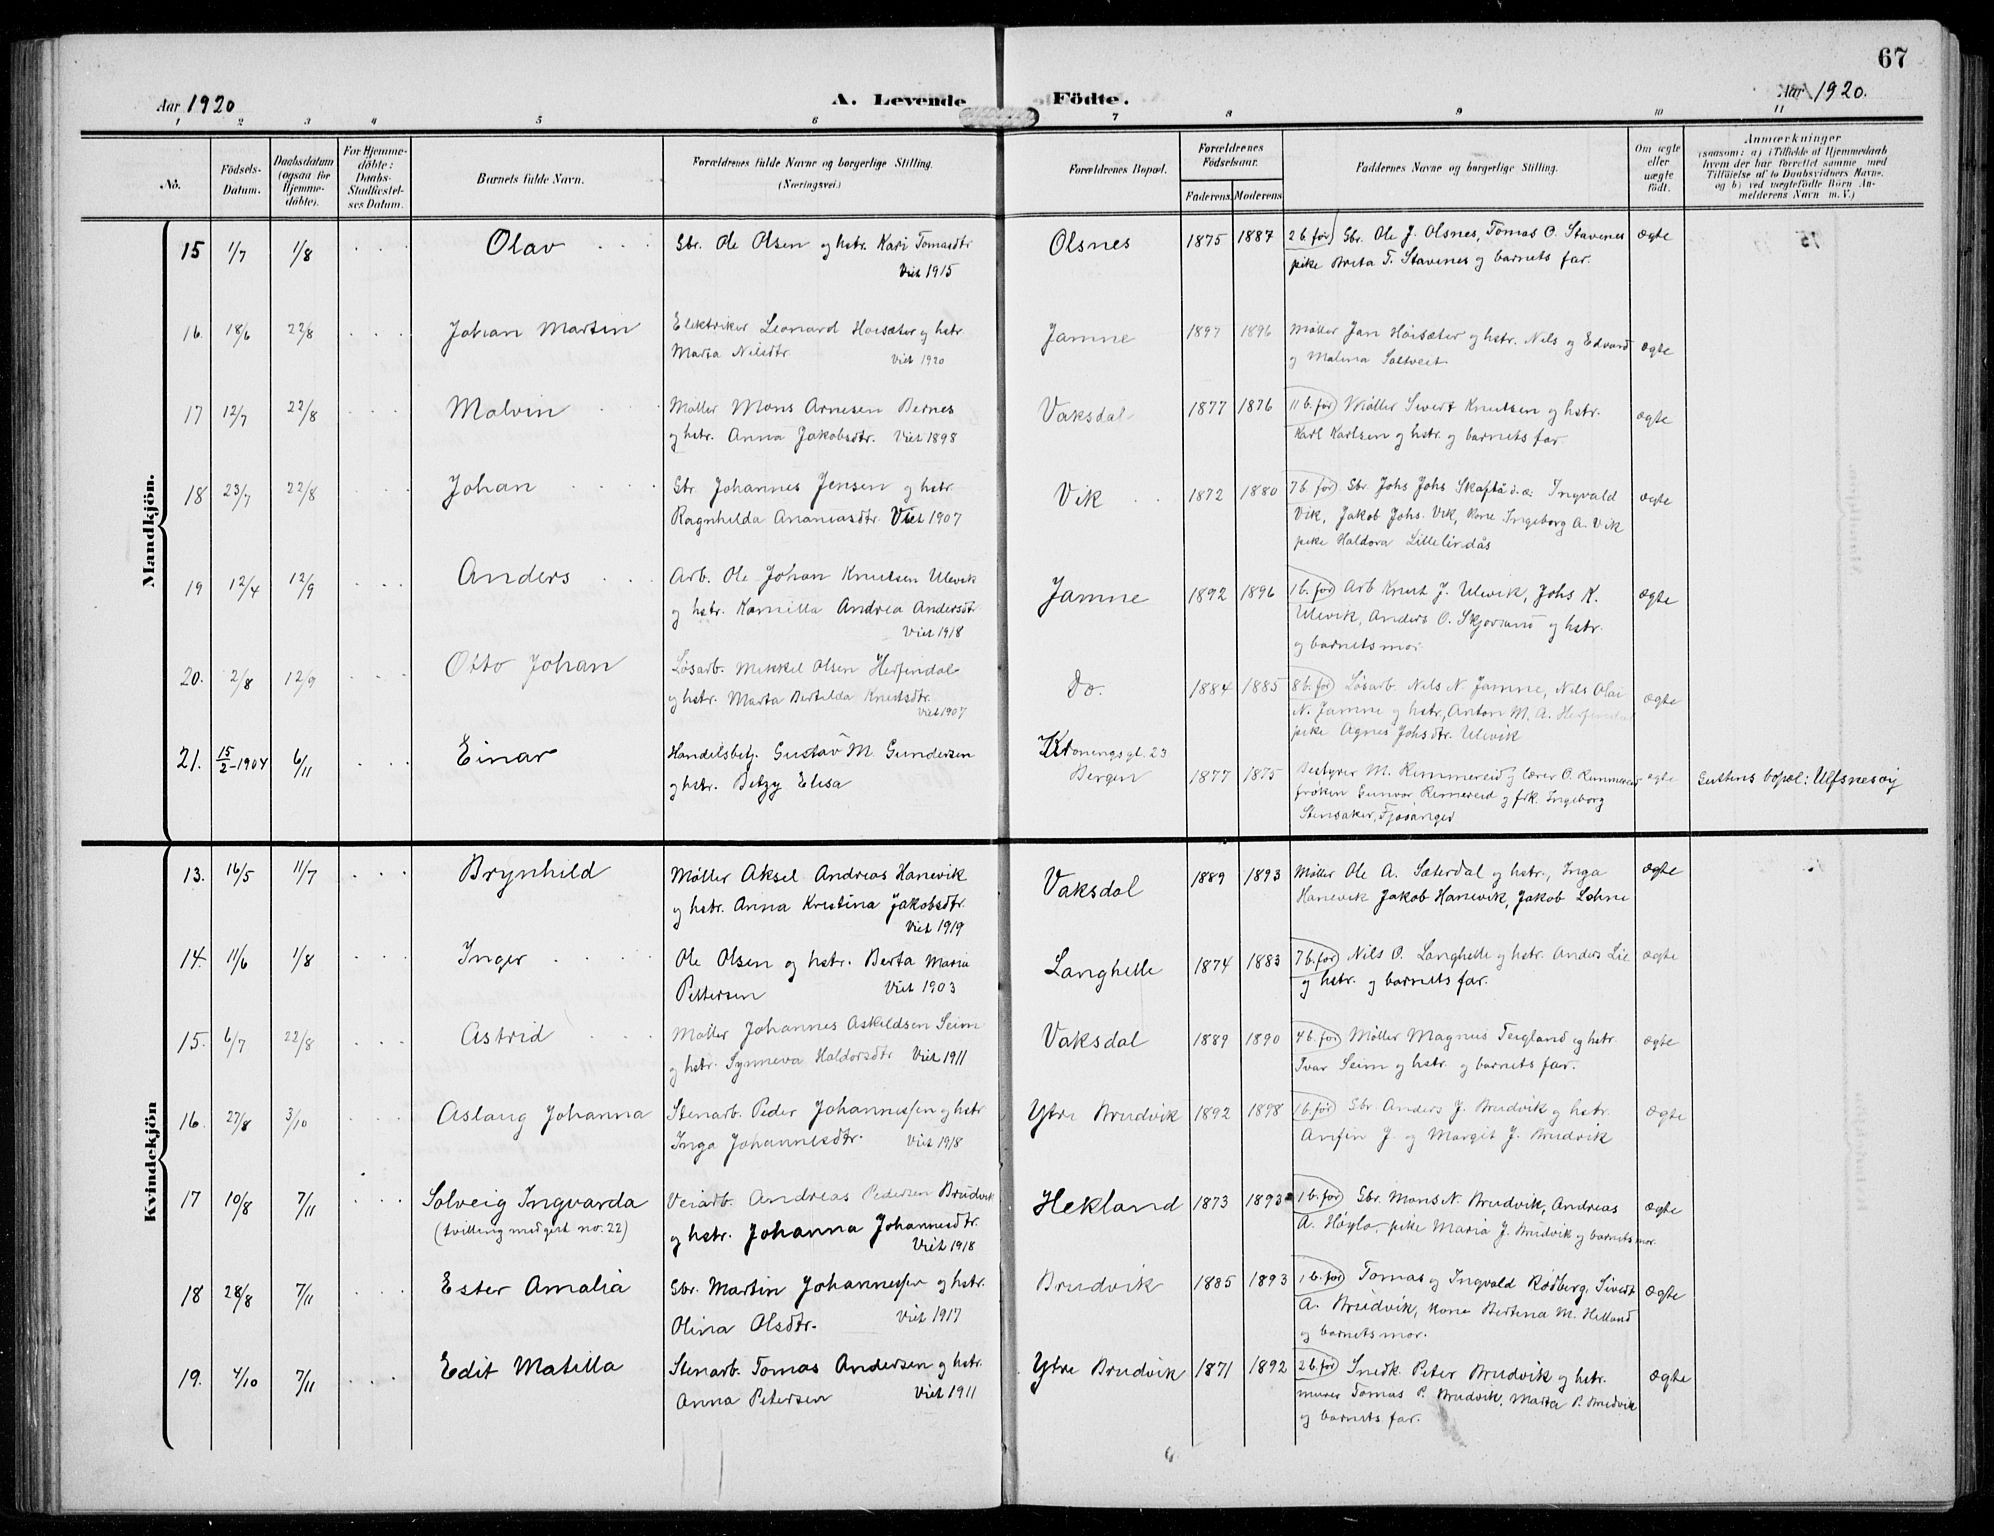 67
Aar 1920
A. Levende Födte.
Aar 1920.
1 2 3 4 5 6 7 8 9 10 11
No.
Födsels-Datum.
Daabsdatum (ogsaa for Hjemme-döbte).
For Hjemme-döbte: Daabs-Stadfæstel-ses Datum.
Barnets fulde Navn.
Forældrenes fulde Navne og borgerlige Stilling. (Næringsvei.)
Forældrenes Bopæl.
Forældrenes Födselsaar.
Faderens. Moderens.
Faddernes Navne og borgerlige Stilling.
Om ægte eller uægte födt.
Anmærkninger
(saasom: a) i Tilfælde af Hjemmedaab
hvem der har forrettet samme, med
Tilföielse af to Daabsvidners Navne,
og b) ved uægtefödte Börn An-
melderens Navn m. V.)
Mandkjön.
15 1/7 1/8 Olav Gbr. Ole Olsen og hstr. Kari Tomasdtr Olsnes 1875 1887 2 b. før Gbr. Ole J. Olsnes, Tomas O. Stavenes ægte
Viet 1915 pike Brita T. Stavenes og barnets far.
16. 18/6 22/8 Johan Martin Elektriker Leonard Høisæter og hstr. Jamne 1897 1896 Møller Jan Høisæter og hstr. Nils og Edvard ægte
Marta Nilsdtr. Viet 1920 og Malina Saltveit.
17 12/7 22/8 Malvin Møller Mons Arnesen Bernes Vaksdal 1877 1876 11 b. før Møller Sivert Knutsen og hstr. ægte
og hstr. Anna Jakobsdtr. Viet 1898 Karl Karlsen og hstr. og barnets far.
18 23/7 22/8 Johan Gbr. Johannes Jensen og hstr. Vik 1872 1880 7 b. før Gbr. Johs Johs Skaftå d.æ. Ingvald ægte
Ragnhilda Ananiasdtr. Viet 1907 Vik, Jakob Johs. Vik, kone Ingeborg A. Vik
pike Haldora Lillelindås
19 12/4 12/9 Anders Arb. Ole Johan Knutsen Ulevik Jamne 1892 1896 1 b. før Arb Knut J. Ulevik, Johs K. ægte
og hstr. Kamilla Andrea Andersdtr. Ulevik, Anders O. Skjovland og hstr.
Viet 1918 og barnets mor.
20. 2/8 12/9 Otto Johan Løsarb. Mikkel Olsen Herfindal Do. 1884 1885 8 b. før Løsarb. Nils N. Jamne, Nils Olai ægte
og hstr. Marta Bertilda Knutsdtr. N. Jamne og hstr, Anton M. A. Herfindal
Viet 1907 pike Agnes Johsdtr. Ulevik
21. 15/2-1904 6/11 Einar Handelsbetj. Gustav M. Gundersen Kroningsgt. 23
og hstr. Betzy Elisa Bergen 1877 1875 Bestyrer M. Remmereid og lærer O. Remmereid ægte Guttens bopæl: Ulfsnesøy
frøken Gunvor Remereid og frk. Ingeborg
Stensaker, Fjøsanger
Kvindekjön
13. 16/5 11/7 Brynhild Møller Aksel Andreas Hanevik Vaksdal 1889 1893 Møller Ole A. Sæterdal og hstr., Inga ægte
og hstr. Anna Kristina Jakobsdtr. Hanevik Jakob Hanevik, Jakob Lohne
Viet 1919
14. 11/6 1/8 Inger Ole Olsen og hstr. Berta Maria Langhelle 1874 1883 7 b. før Nils O. Langhelle og hstr. Anders Lie ægte
Pettersen Viet 1903 og hstr. og barnets far.
15. 6/7 22/8 Astrid Møller Johannes Askildsen Seim Vaksdal 1889 1890 4 b. før Møller Magnus Teigland og hstr. ægte
og hstr. Synneva Haldorsdtr Viet 1911 Ivar Seim og hstr. og barnets far.
16. 27/8 3/10 Aslaug Johanna Stenarb. Peder Johannessen og hstr Ytre Brudvik 1892 1898 1 b. før Gbr. Anders J. Brudvik og hstr. ægte
Inga Johannesdtr. Viet 1918 Anfin J. og Margit J. Brudvik
17 10/8 7/11 Solveig Ingvarda Veiarb. Andreas Pedersen Brudvik Hekland 1873 1893 1 b. før Gbr. Mons N. Brudvik, Andreas ægte
(tvilling med gut no. 22) og hstr. Johanna Johannesdtr. A. Høyla, pike Maria J. Brudvik og barnets mor.
Viet 1918
18 28/8 7/11 Ester Amalia Gbr. Martin Johannessen og hstr. Brudvik 1885 1893 1 b. før Tomas og Ingvald Rødberg, Sivert ægte
Olina Olsdtr. Viet 1917 A. Brudvik, kone Bertina M. Helland
og barnets mor.
19. 4/10 7/11 Edit Matilla Stenarb. Tomas Andersen og hstr. Ytre Brudvik 1871 1892 2 b. før Snedk. Peter Brudvik og hstr. ægte
Anna Petersen Viet 1911 murer Tomas P. Brudvik, Marta P. Brudvik
og barnets far.